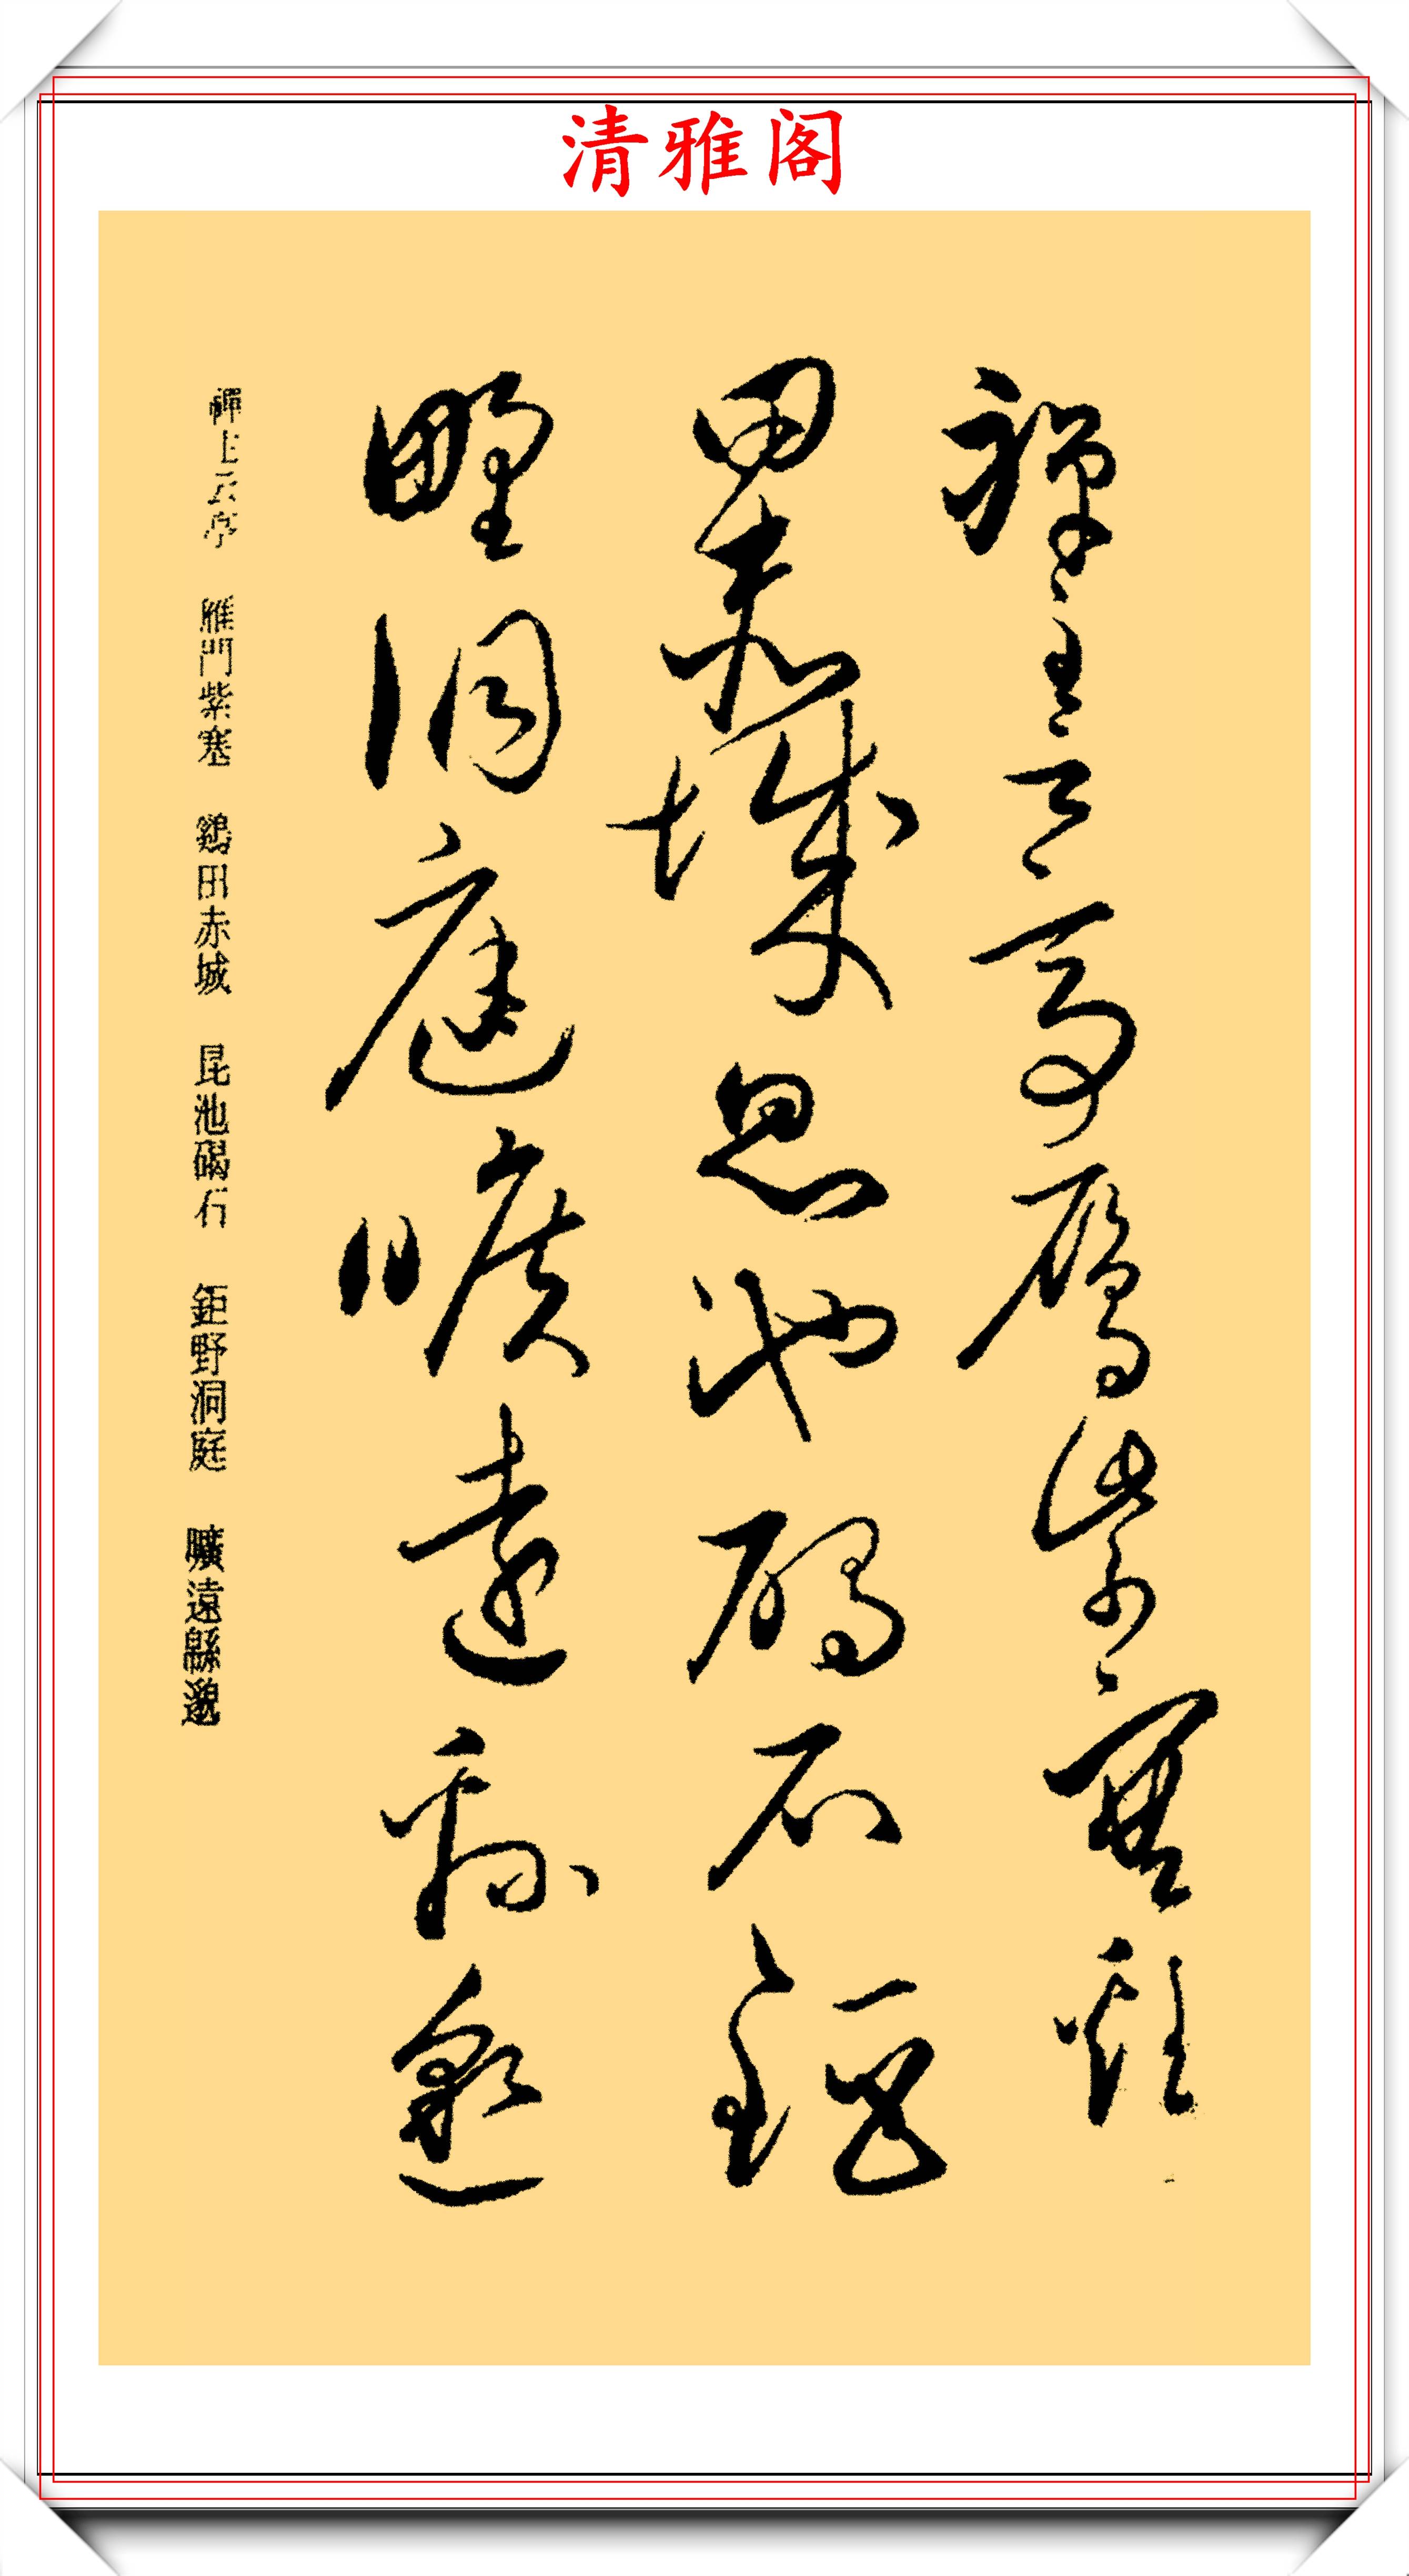 清雅阁
禪主云亭雁紫塞雞
田赤城昆池碣石鉅
野洞庭曠遠緜邈
禪主云亭 雁門紫塞 鷄田赤城 昆池碣石 鉅野洞庭 曠遠緜邈